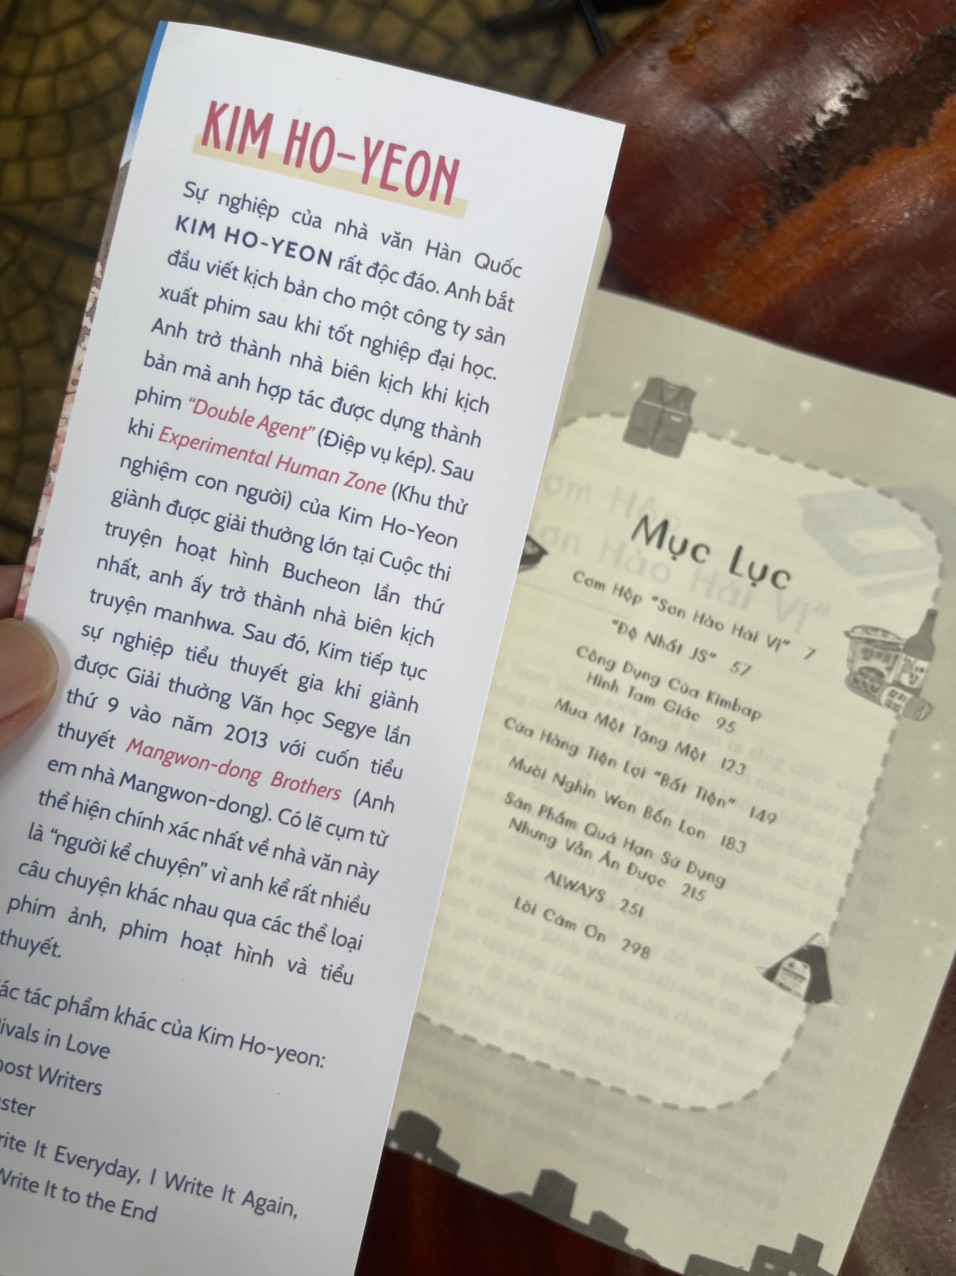 KIM HO-YEON
Sự nghiệp của nhà văn Hàn Quốc
KIM HO-YEON rất độc đáo. Anh bắt
đầu viết kịch bản cho một công ty sản
xuất phim sau khi tốt nghiệp đại học.
Anh trở thành nhà biên kịch khi kịch
bản mà anh hợp tác được dựng thành
phim “Double Agent” (Điệp vụ kép). Sau
khi Experimental Human Zone (Khu thử
nghiệm con người) của Kim Ho-Yeon
giành được giải thưởng lớn tại Cuộc thi
truyện hoạt hình Bucheon lần thứ
nhất, anh ấy trở thành nhà biên kịch
truyện manhwa. Sau đó, Kim tiếp tục
sự nghiệp tiểu thuyết gia khi giành
được Giải thưởng Văn học Segye lần
thứ 9 vào năm 2013 với cuốn tiểu
thuyết Mangwon-dong Brothers (Anh
em nhà Mangwon-dong). Có lẽ cụm từ
thể hiện chính xác nhất về nhà văn này
là “người kể chuyện” vì anh kể rất nhiều
câu chuyện khác nhau qua các thể loại
phim ảnh, phim hoạt hình và tiểu
thuyết.
tác phẩm khác của Kim Ho-yeon:
in Love
Writers
It Everyday, I Write It Again,
Write It to the End
Mục Lục
Cơm Hộp “Sơn Hào Hải Vị” 7
“Đệ Nhất JS” 57
Công Dụng Của Kimbap
Hình Tam Giác 95
Mua Một Tặng Một 123
Cửa Hàng Tiện Lợi “Bất Tiện” 149
Mười Nghìn Won Bốn Lon 183
Sản Phẩm Quá Hạn Sử Dụng
Nhưng Vẫn Ăn Được 215
ALWAYS 251
Lời Cảm Ơn 298